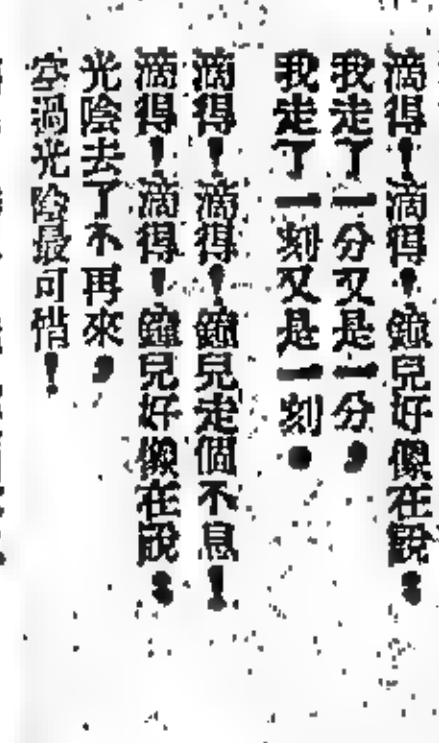 滴得!滴得!鐘兒好像在說:
我走了一分又是一分,
我走了一刻又是一刻。
滴得!滴得!鐘兒走個不息!
滴得!滴得!鐘兒好像在說:
光陰去了不再來,
空過光陰最可惜!